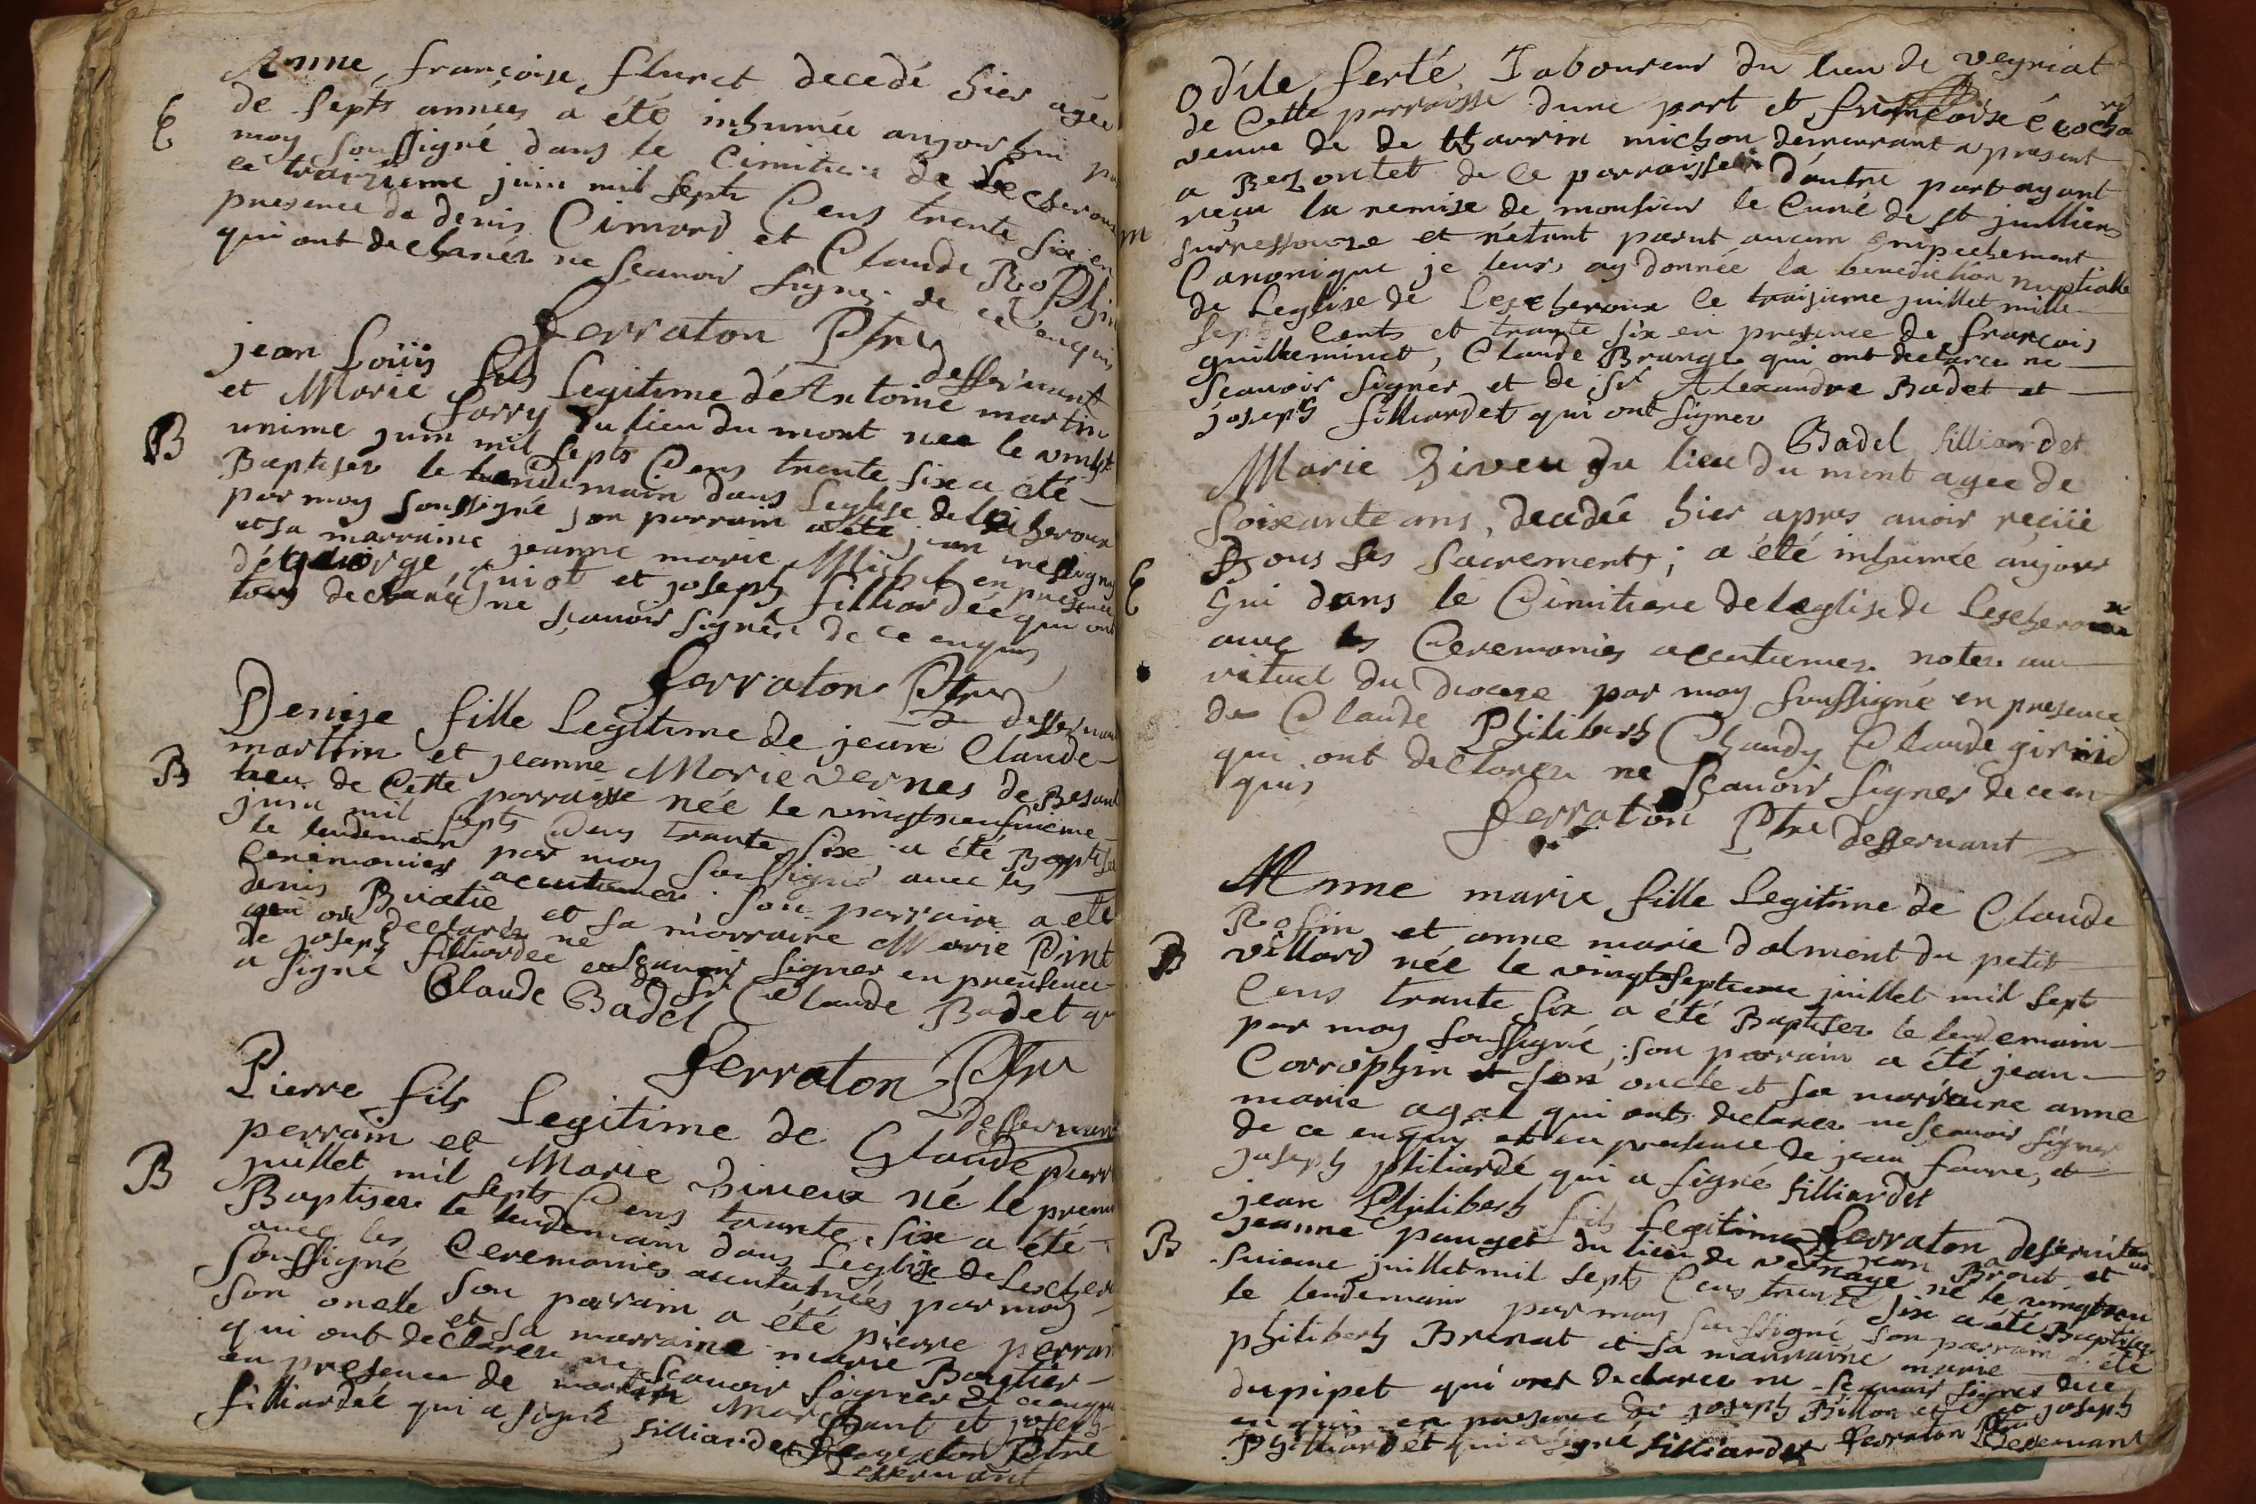 Anne françoise fluret decedé hier agée
de septs années a été inhumée aujourhui
E
moy soussigné dans le Cimitiere de
le traizieme juin mil septs Cens trente six en
presence de denis Cimard et Claude Rophin
qui ont declarer ne scauoir signer de ce enquis
ferraton Ptre desseruant
jean Loüis fils Legitime d'éAntoine martin
et Marie farry du lieu du mont nee le vingt
B
unime juin mil septs Cens trente six a été
Baptiser le lendemain dans Leglise de Lescheroux
par moy soussigné son parrain a été jean
et sa marraine jeanne marie Michel en presence
george Guiot et joseph filliardée qui ont
tous declarés ne scauoir signér de ce enquis
ferraton Ptre desseruant
Denise fille Legitime de jean Claude
martin et jeanne Marie vernes de
B
lieu de Cette parraisse née le vingtneufuieme
juin mil septs Cens trante six a été Baptiser
le lendemain par moy soussigné auec les
Ceremonies accutumer son parrain a été
denis Buatie et sa marraine Marie Pint
qui ont declarer ne scauoir signer en preusence
de joseph filliardée et de Sr Claude Badet qui
a signé Claude Badel
ferraton Ptre
desseruant
Pierre fils Legitime de Claude pierre
perrain et Marie Diveux né le premier
B
juillet mil septs Cens trante six a été
Baptiser le lendemain dans Leglise de Lescher
auec les Ceremonies accutumées par moy
soussigné son parain a été pierre perrain
son oncle et sa marraine marie Boutier
qui ont declarer ne scauoir signer de ce enquis
en presence de martin Marchant et joseph
filliardée qui a signé filliardet ferraton Ptre
desseruant
Odile ferté Laboureur du lieu de veyriat
de Cette parraisse dune part et françoise
veuue de de thaurin michon demeurant a present
a Bezontet de ce parraisse d'autre part ayant
reçu la remise de monsieur le Curé de st jullien
m
surressouze et n'etant parut aucun empechement
Canonique je leurs ay donnée la benediction nuptialle
de Leglise de Lescheroux le traizieme juillet mille
septs Cents et trante six en presence de françois
guilleminet, Claude Brunge qui ont declarer ne
scauoir signer et de Sr Alexandre Badet et
joseph filliardet qui ont signer
Badel filliardet
Marie Diveu du lieu du mont agee de
soixante ans, decedée hier apres auoir reçüe
tous ses sacrements; a été inhumée aujour
E
hui dans le Cimitiere de leglise de Lescheroux
auec les Ceremonies accutumer noter au
rituel du diocese par moy soussigné en presence
de Claude Philibert Chaudy Claude girrid
qui ont declarer ne scauoir signer de ce en
quis
ferraton Ptre desseruant
Anne marie fille Legitime de Claude
Rofin et anne marie dalment du petit
B
villard née le vingtseptieme juillet mil sept
Cens trante six a été Baptiser le lendemain
par moy soussigné; son parrain a été jean
Corrophin son oncle et sa marraine anne
marie agat qui onts declarer ne scauoir signer
de ce enquis et en preusence de jean faure, et
joseph philiardé qui a signé filliardet
jean Philibert fils Legitime ferraton deseruiteur
B
de jean Brout et
jeanne pauget du lieu de vernaye né le vingtneu
fuieme juillet mil septs Cens trente six a été Baptiser
le lendemain par moy soussigné son parrain a été
philibert Brenat et sa marraine marie
dupipet qui ont declarer ne scauoir signer de ce
en quis en presence de joseph Billon et joseph
Philliardet qui a signé filliardet ferraton Ptre
deseruant